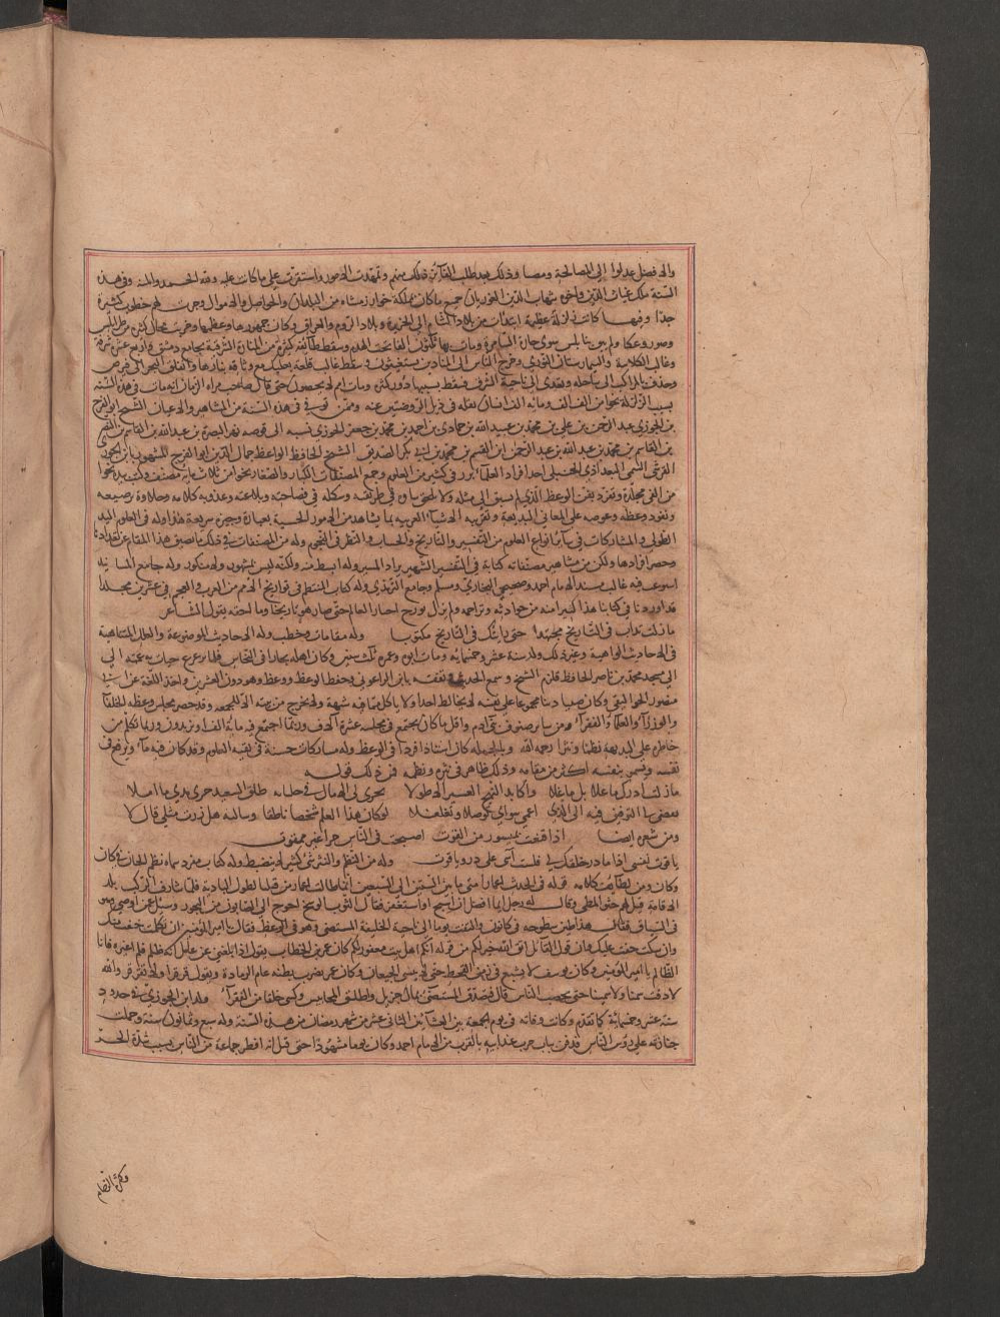 والافضل عدلوا إلى المصالحة وذلك بعد طلب فلك بينهم وتمهدت الامور واستقرت على ما كانت عليه ولله الحمد والمنة وفي هذه
السنة ملك غياث الدين واخوه شهاب الدين الغوريان جميع ما كان يملكه خوارزم شاه من البلدان والحواصل والاموال وجرت لهم خطوب كثيرة
جدا وفيها كانت زلزلة عظيمة ابتدأت من بلاد الشام إلى الجزيرة وبلاد الروم والعراق وكان جمهورها وعظمها
وصور وعكا ولم يبق بنابلس سوى حارة السامرة ومات بها ثلثون الفا تحت الهدم وسقط طائفة كثيرة من المنارة الشرقية بجامع دمشق واربع عشرة شرافة
وغالب الكلاسة والمارستان النوري وخرج الناس إلى الميادين يستغيثون وسقط غالب قلعة بعلبك مع وثاقة بنيانها وانفلق البحر إلى قبرص
وحذف بالمراكب إلى ساحله وتعدى إلى ناحية الشرق فسقط بسببها دور كثيرة ومات امم لا يحصون حتى قال صاحب مراة الزمان انه مات في هذه السنة
بسبب الزلزلة نحوا من الف الف ومائة الف انسان نقله في ذيل الروضتين عنه وممن توفي في هذه السنة من المشاهير والاعيان الشيخ ابو الفرج
بن الجوزي عبد الرحمن بن علي بن محمد بن عبيد الله بن حمادي بن احمد بن محمد بن جعفر الجوزي نسبه إلى فرضة نهر البصرة بن عبد الله بن القاسم بن النضر
بن القاسم بن محمد بن عبد الله بن عبد الرحمن بن القاسم بن محمد بن ابي بكر الصديق الشيخ الحافظ الواعظ جمال الدين ابو الفرج المشهور بابن الجوزي
القرشي التيمي البغدادي الحنبلي احد افراد العلماء برز في كثير من العلوم وجمع المصنفات الكبار والصغار نحوا من ثلاث مائة مصنف وكتب بيده نحوا
من الفي مجلدة وتفرد بفن الوعظ الذي لم يسبق إلى مثله ولا يلحق شاوه في طريقته وشكله في فصاحته وبلاغته وعذوبة كلامه وحلاوة ترصيعه
ونفوذ وعظه وغوصه على المعاني البديعة وتقريبه الاشياء الغريبه بما يشاهد من الامور الحسية بعبارة وجيزة سريعة هذا وله في العلوم اليد
الطولى والمشاركات في سائر انواع العلوم من التفسير والتاريخ والحساب والنظر في النجوم وله من المصنفات في ذلك ما يضيق هذا المقام عن تعدادها
وحصر افرادها ولكن من مشاهير مصنفاته كتابه في التفسير الشهير بزاد المسير وله ابسط منه ولكنه ليس بمشهور ولا منكور وله جامع المسانيد
استوعب فيه غالب مسند الامام احمد وصحيحي البخاري ومسلم وجامع الترمذي وله كتاب المنتظم في تواريخ الامم من العرب والعجم في عشرين مجلدا
قد اوردنا في كتابنا هذا كثيرا منه من حوادثه وتراجمه ولم يزل يورخ اخبار العالم حتى صار هو تاريخا وما احقه بقول الشاعر
ما زلت تداب في التاريخ مجتهدا حتى رايتك في التاريخ مكتوبا وله مقامات وخطب وله الاحاديث الموضوعة والعلل المتناهية
في الاحاديث الواهية وغير ذلك ولد سنة عشر وخمسمائة ومات ابوه وعمره ثلث سنين وكان اهله تجارا في النحاس فلما ترعرع جاءت به عمته إلى
الى مسجد محمد بن ناصر الحافظ فلزم الشيخ وسمع الحديث وتفقه بابن الزاغوني وحفظ الوعظ ووعظ وهو دون العشرين واخذ اللغة عن ابي
منصور الجواليقي وكان صبيا دينا مجموعا على نفسه لا يخالط احدا ولا ياكل ما فيه شبهة ولا يخرج من بيته الا للجمعة وقد حضر مجلس وعظه الخلفاء
والوزراء والعلماء والفقراء ومن سائر صنوف بني ادم واقل ما كان يجتمع في مجلسه عشرة الاف وربما اجتمع فيه مائة الف او يزيدون وربما تكلم من
خاطره على البديهة نظما ونثرا رحمه الله وبالجملة كان استاذا فردا في الوعظ وله مشاركات حسنة في بقية العلوم وقد كان فيه بهاء وترفع في
نفسه ويسمو بنفسه اكثر من مقامه وذلك ظاهر في نثره ونظمه فمن ذلك قوله
ما زلت ادرك ما غلا بل ما علا واكابد النهج العسير الاطولا تجري بي الامال في حلباته طلق السعيد جرى مدى ما املا
يفضي بي التوفيق فيه إلى الذي اعيى سواي توصلا وتغلغلا لو كان هذا العلم شخصا ناطقا وسالته هل زرت مثلي قال لا
ومن شعره ايضا اذا قنعت بميسور من القوت اصبحت في الناس حرا غير ممقوت
يا قوت نفسي اذا ما در خلفك لي فلست اسى على در وياقوت وله من النظم والنثر شيء كثير لا ينضبط وله كتاب مفرد سماه نظم الجمان في كان
وكان ومن لطائف كلامه قوله في الحديث اعمار امتي ما بين الستين إلى السبعين انما طالت اعمار من قبلنا لطول البادية فلما شارف الركب بلد
الاقامة قيل لهم حثوا المطي وقال له رجل ايما افضل ان اسبح او استغفر فقال الثوب الوسخ احوج إلى الصابون من البخور وسئل عن اوصى وهو
في السياق فقال هذا طين سطوحه في كانون والتفت يوما إلى ناحية الخليفة المستضي وهو في الوعظ فقال يا امير المؤمنين ان تكلمت خفت منك
وان سكت خفت عليك وان قول القائل اتق الله خير لكم من قوله انكم اهل بيت مغفور لكم كان عمر بن الخطاب يقول اذا بلغني عن عامل انه ظلم فلم اغيره فانا
الظالم يا امير المؤمنين وكان يوسف لا يشبع في زمن القحط حتى لا ينسى الجيعان وكان عمر يضرب بطنه عام الرمادة ويقول قرقر اولا تقرقر والله
لا ذقت سمنا ولا سمينا حتى يخصب الناس قال فتصدق المستضئ بمال جزيل واطلق المحابيس وكسى خلقا من الفقراء ولد ابن الجوزي في حدود
سنة عشر وخمسمائة كما تقدم وكانت وفاته في يوم الجمعة بين العشائين الثاني عشر من شهر رمضان من هذه السنة وله سبع وثمانون سنة وحملت
جنازته على رؤس الناس فدفن بباب حرب عند ابيه بالقرب من الامام احمد وكان يوما مشهودا حتى قيل انه افطر جماعة من الناس بسبب شدة الحر
وكثرة الزحام